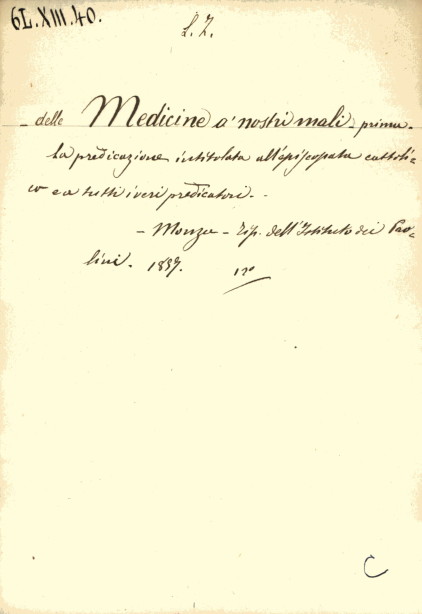 6L.XIII.40.
L. Z.
- delle Medicine a' nostri mali - prima -
La predicazione intitolata all'episcopato cattoli-
co e a tutti i veri predicatori. -
- Monza - Tip. dell'Istituto dei Pao-
lini. 1857. 12°
C